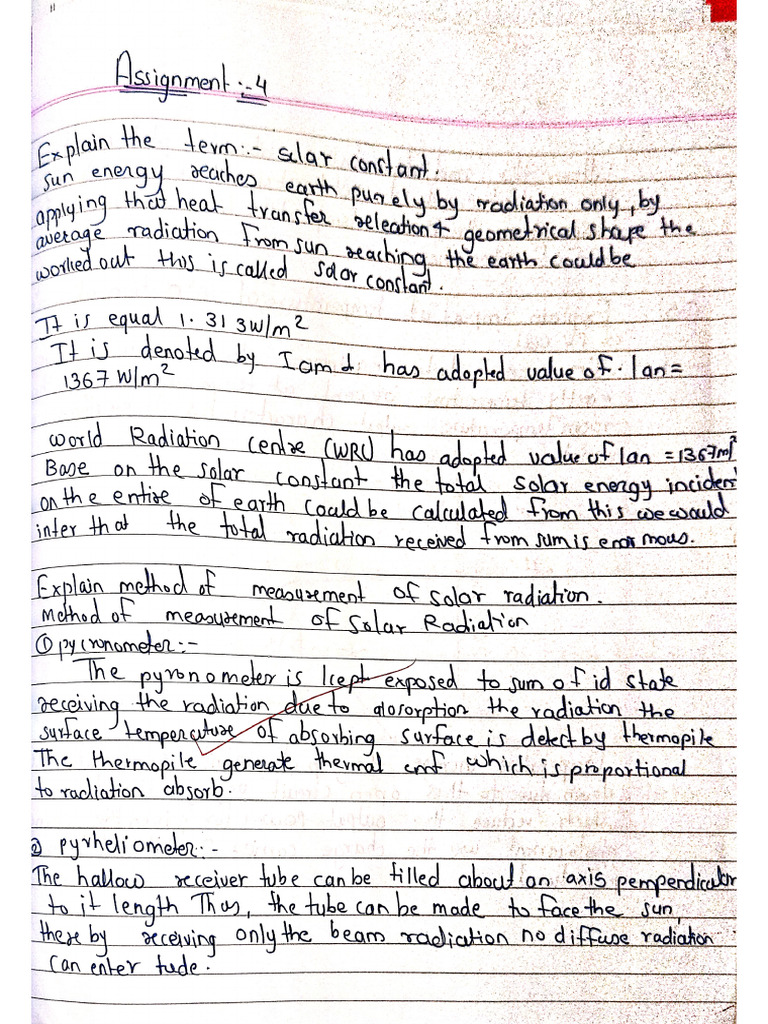 Assignment :- 4
Explain the term :- solar constant.
sun energy reaches earth purely by radiation only, by
applying that heat transfer releation & geometrical shape the
average radiation from sun reaching the earth could be
worked out this is called solar constant.
It is equal 1.313w/m²
It is denoted by I am & has adopted value of. Ian =
1367 W/m²
World Radiation centre (WRC) has adopted value of Ian = 1367m²
Base on the solar constant the total solar energy inciden
on the entire of earth could be calculated from this we would
inter that the total radiation received from sum is enormous.
Explain method of measurement of solar radiation.
Method of measurement of Solar Radiation
① pycronometer :-
The pyronometer is kept exposed to sum of id state
receiving the radiation due to alosorption the radiation the
surface temperature of absorbing surface is detect by thermopile
The thermopile generate thermal emf which is proportional
to radiation absorb.
② pyrheliometer :-
The hallow receiver tube can be filled about an axis pempendicular
to it length Thus, the tube can be made to face the sun,
there by receiving only the beam radiation no diffuse radiation
can enter tude.